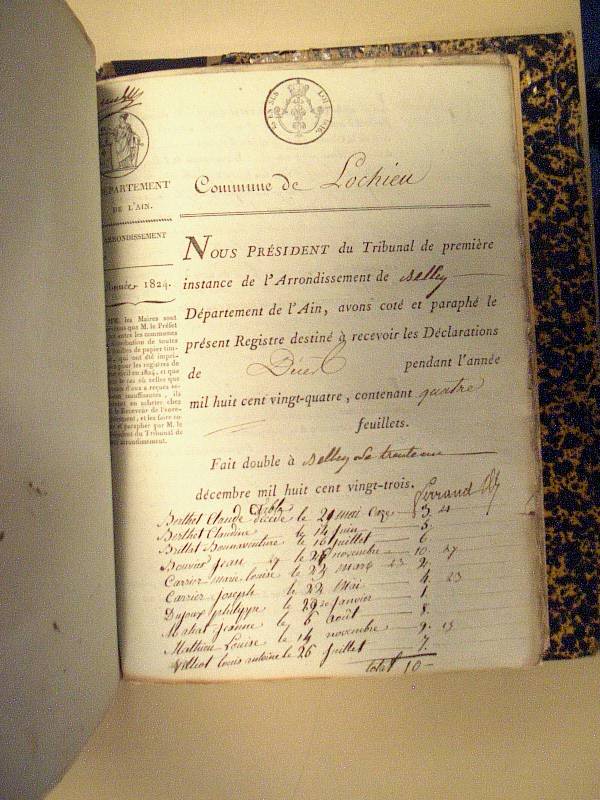 DÉPARTEMENT
DE L'AIN.
ARRONDISSEMENT
Année 1824.
les Maires sont
que M. le Préfet
entre les communes
distribution de toutes
feuilles de papier tim-
qui ont été impri-
pour les registres de
civil en 1824, et que
le cas où celles que
d'eux a reçues se-
insuffisantes, ils
en acheter chez
le Receveur de l'enre-
gistrement, et les faire co-
et parapher par M. le
Président du Tribunal de
arrondissement.
Commune de Lochieu
NOUS PRÉSIDENT du Tribunal de première
instance de l'Arrondissement de Belley
Département de l'Ain, avons coté et paraphé le
présent Registre destiné à recevoir les Déclarations
de Décès pendant l'année
mil huit cent vingt-quatre, contenant quatre
feuillets.
Fait double à Belley le trente un
décembre mil huit cent vingt-trois.
Ferrand
Berthet Claude décédé le 29 mai 3
Berthet Claudine le 14 juin 5
Brillat Bonnaventure le 16 juillet 6
Bouvier Jean le 26 novembre 10 27
Carrier marie louise le 22 mars 2
Carrier Joseph le 22 Mai 4 23
Dujoux philippe le 29 Janvier 1
Mahat Jeanne le 6 août 8
Mathieu Louise le 14 novembre 9
Villiot louis antoine le 26 juillet 7
total 10